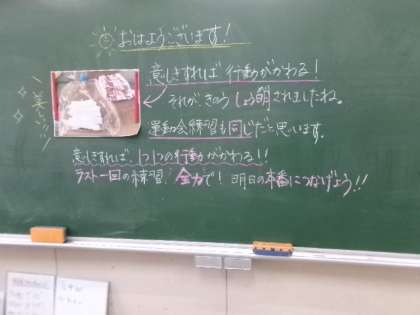 おはようございます!
意しきすれば行動がかわる!
それが、きのうしょう明されましたね。
運動会練習も同じだと思います。
意しきすれば、1つ1つの行動がかわる!!
ラスト一回の練習 全力で! 明日の本番につなげよう!!